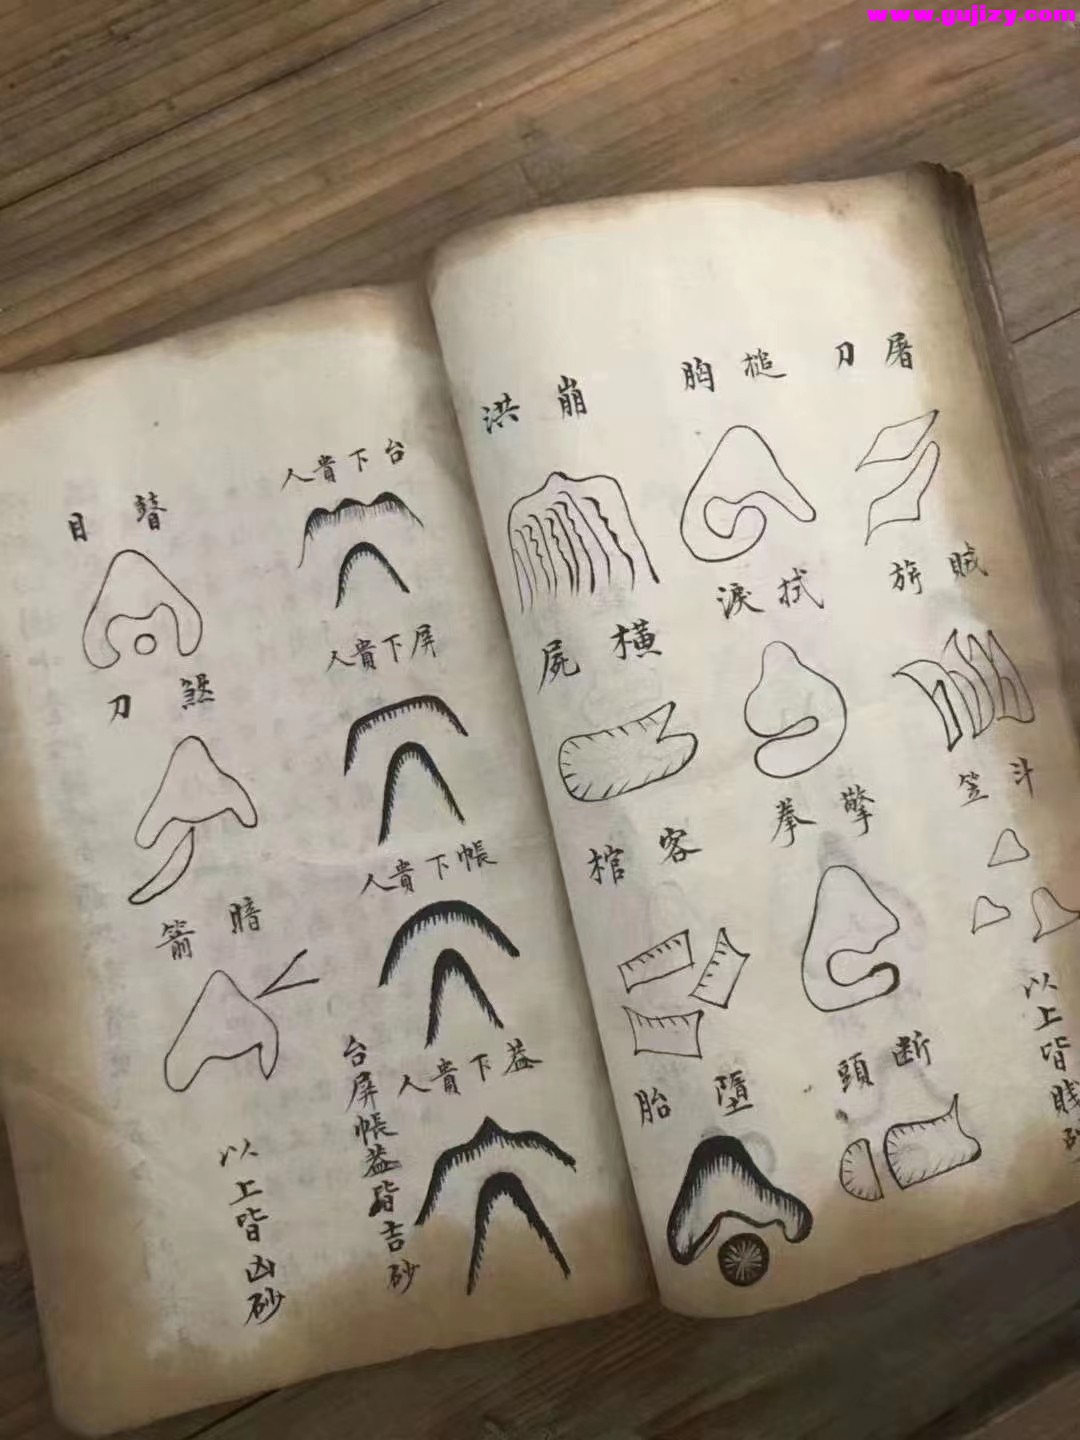 屠刀
賊旂
斗笠
以上皆賤砂
槌胸
拭淚
擎拳
断頭
崩洪
橫屍
客棺
墮胎
台下貴人
屏下貴人
帳下貴人
益下貴人
台屏帳益皆吉砂
瞽目
煞刀
暗箭
以上皆凶砂
www.gujizy.com